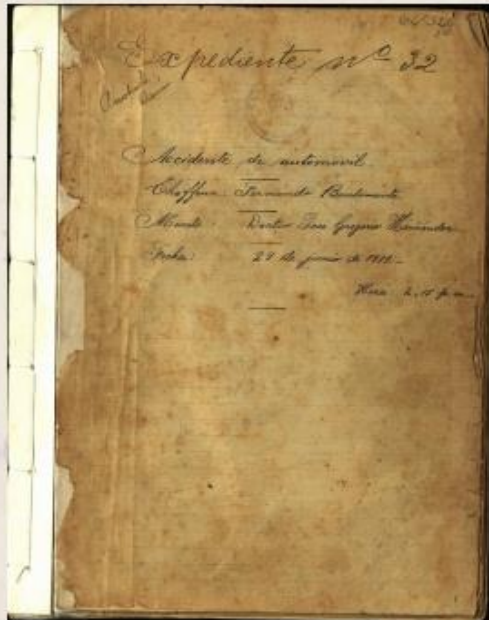 Expediente nº 32
Accidente de automovil.
Chauffeur: Fernando Bustamante
Muerto: Doctor José Gregorio Hernández
Fecha: 29 de junio de 1919.-
Hora: 2, 15 p.m.